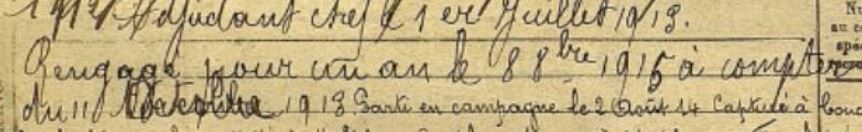 1912 Adjudant chef le 1er Juillet 1913.
Rengagé pour un an le 8 8bre 1915 à compter
du 11 Octobre 1913 Parti en campagne le 2 Août 14 Capturé à
Nu
au co
spé